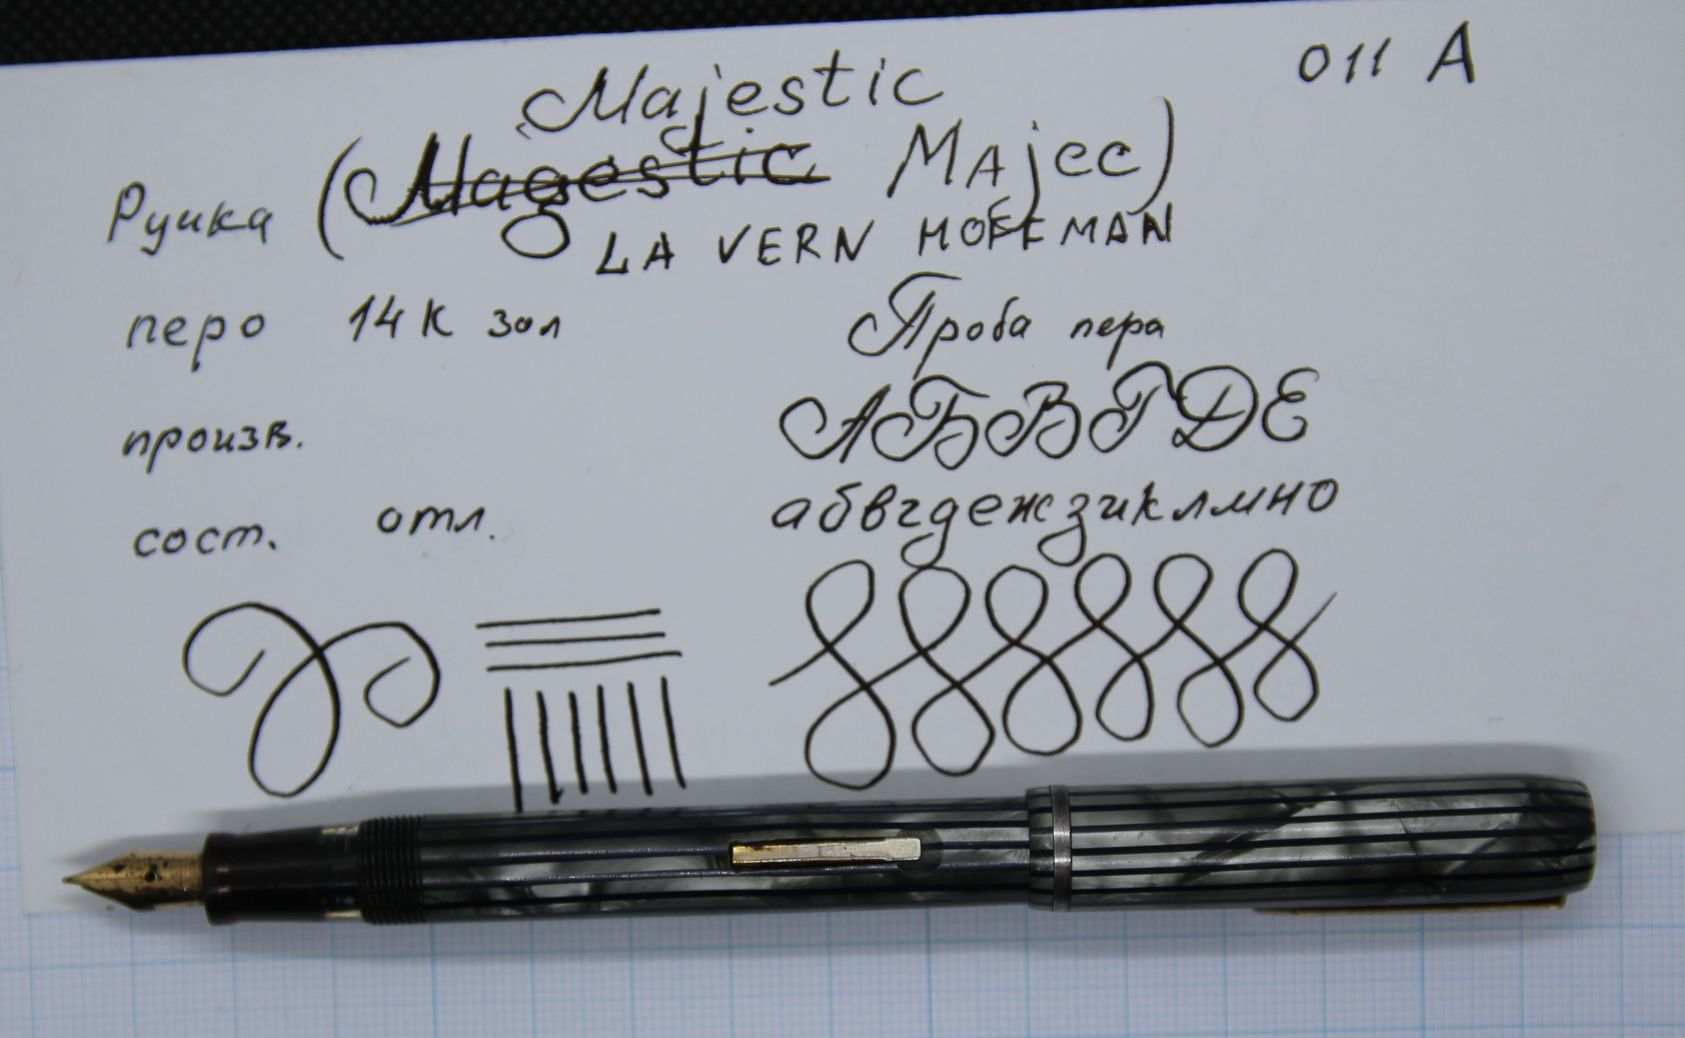 011 A
Majestic
Ручка (Magestic Majec)
LA VERN HOFFMAN
перо 14К зол
Проба пера
произв.
АБВГДЕ
сост. отл.
абвгдежзиклмно